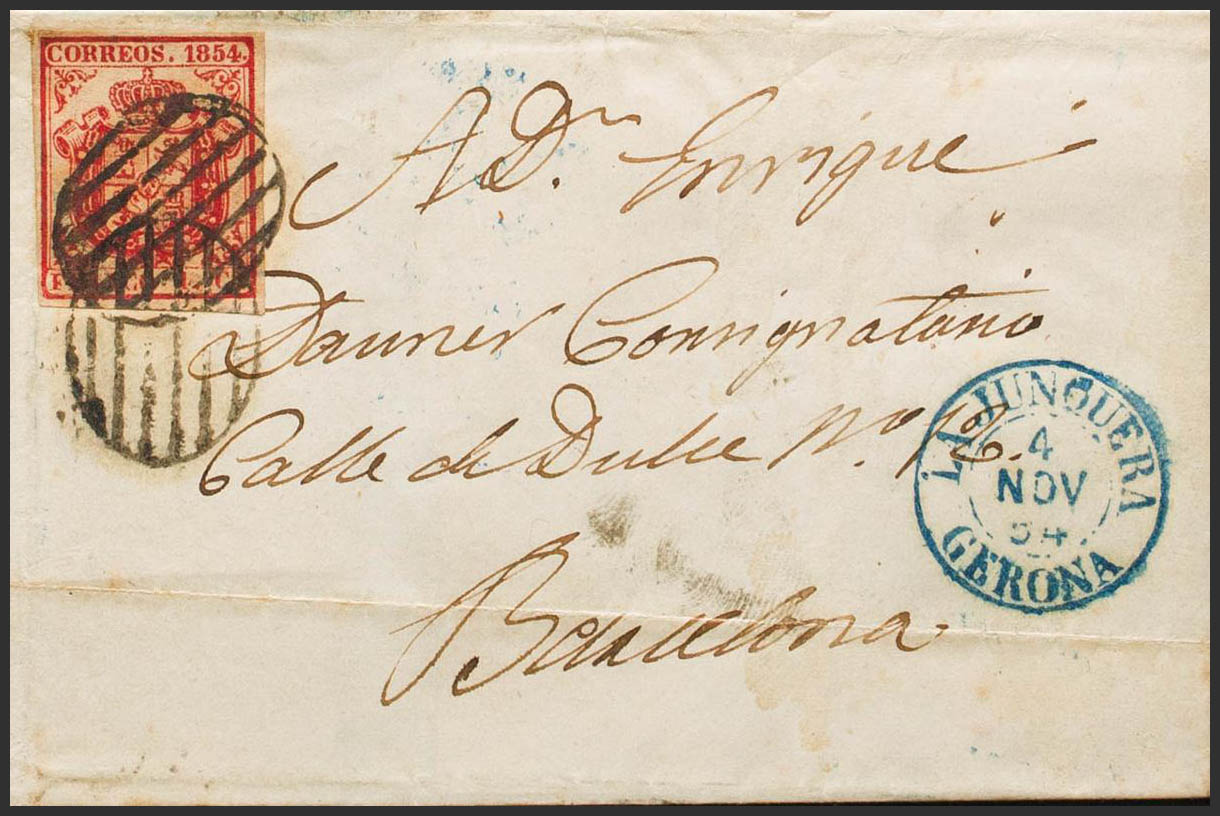 CORREOS. 1854.
A Dn. Enrique
Dauner Consignatario
Calle de Dulce Nº 12.
Barcelona
LA JUNQUERA
4
NOV
54
GERONA